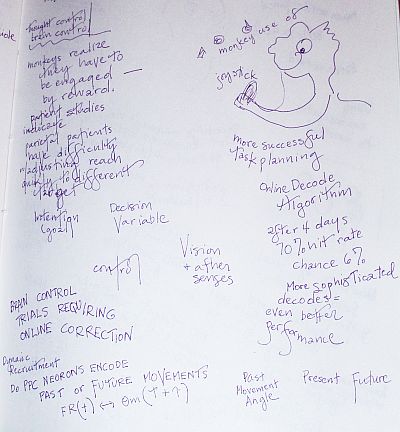 thought control
brain control
monkeys realize
they have to
be engaged —
by reward.
patient studies
indicate
parietal patients
have difficulty
adjusting reach
quickly to different
target
Intention
(goal)
Decision
Variable
control
Vision
+ other
senses
BRAIN CONTROL
TRIALS REQUIRING
ONLINE CORRECTION
Dynamic
Recruitment
DO PPC NEURONS ENCODE
PAST OR FUTURE MOVEMENTS
FR(t) ↔ θm(t+τ)
monkey use of
joystick
more successful
task planning
Online Decode
Algorithm
after 4 days
70% hit rate
chance 6%
More sophisticated
decodes =
even better
performance
Past
Movement
Angle
Present
Future